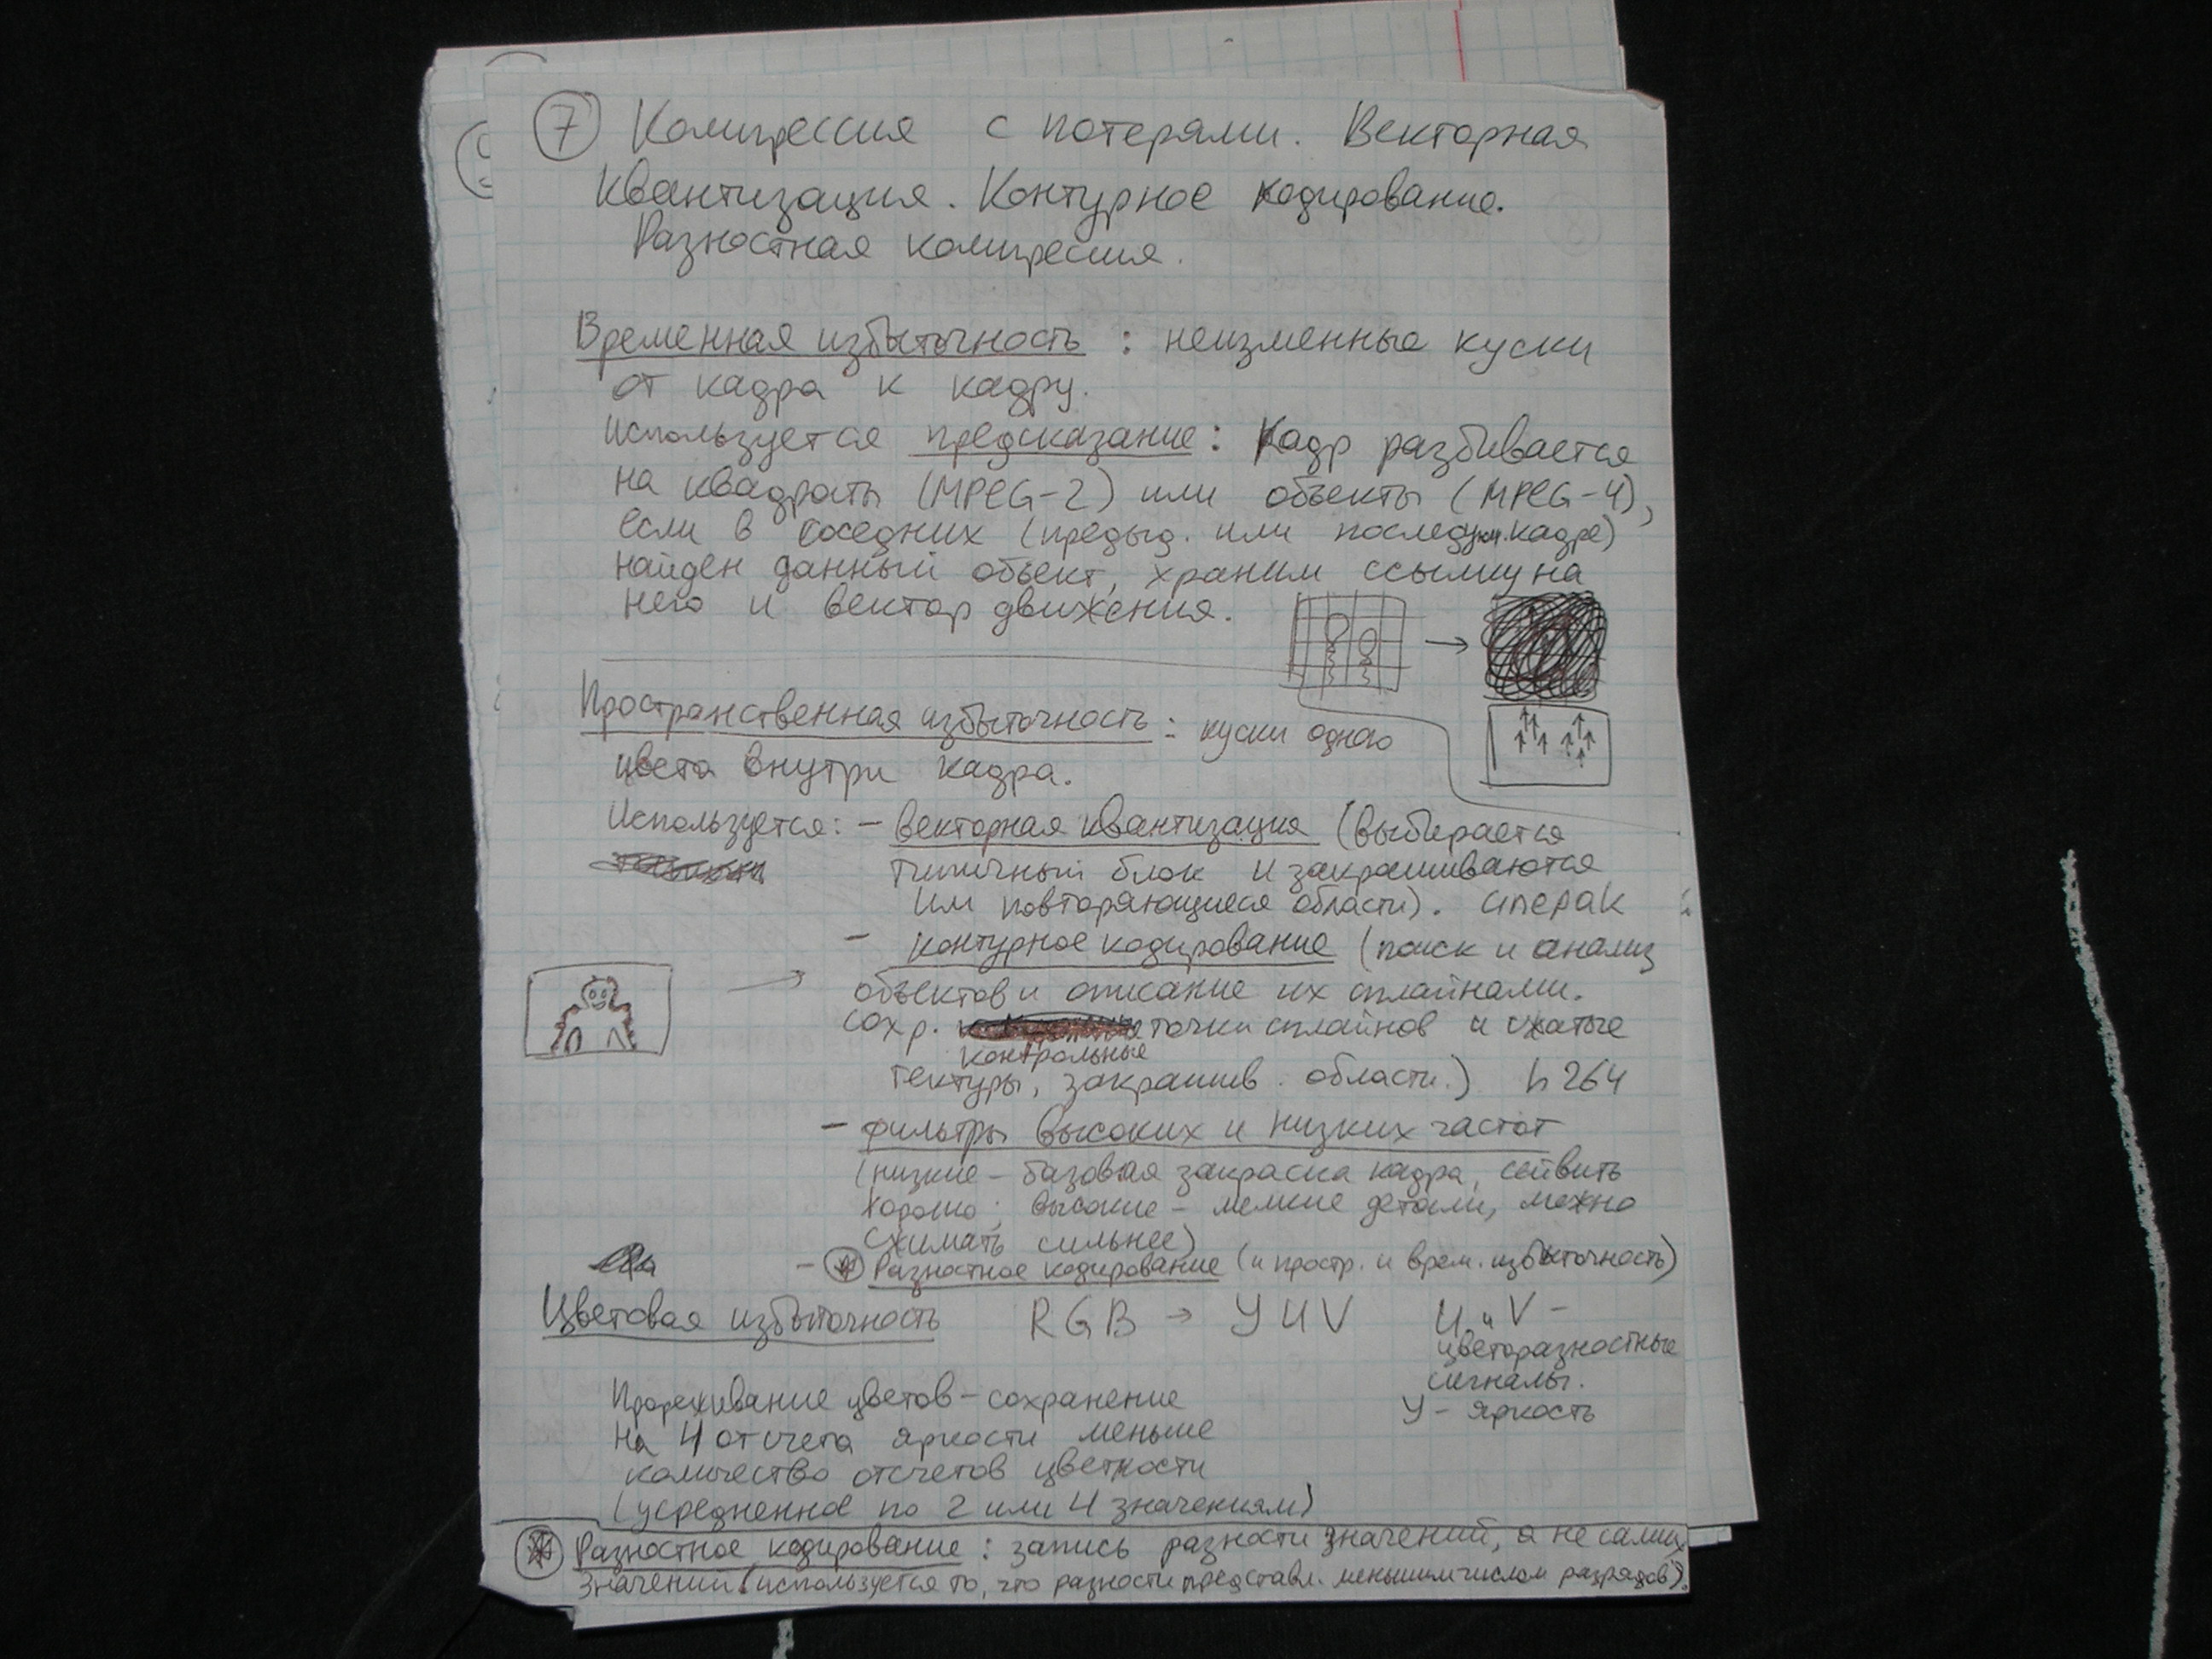 7 Компрессия с потерями. Векторная
квантизация. Контурное кодирование.
Разностная компрессия.
Временная избыточность : неизменные куски
от кадра к кадру.
Используется предсказание: Кадр разбивается
на квадраты (MPEG-2) или объекты (MPEG-4),
если в соседних (предыд. или последующ. кадре)
найден данный объект, храним ссылку на
него и вектор движения.
Пространственная избыточность : куски одного
цвета внутри кадра.
Используется: – векторная квантизация (выбирается
типичный блок и закрашиваются
им повторяющиеся области). cinepak
– контурное кодирование (поиск и анализ
объектов и описание их сплайнами.
Сохр. контрольные точки сплайнов и сжатые
тектуры, закрашив. области.) h264
– фильтры высоких и низких частот
(низкие – базовая закраска кадра, сейвить
хорошо; высокие – мелкие детали, можно
сжимать сильнее)
– Разностное кодирование (и простр. и врем. избыточность)
Цветовая избыточность RGB → YUV U и V –
цветоразностные
сигналы.
Y – яркость
Прореживание цветов – сохранение
на 4 отсчета яркости меньше
количество отсчетов цветности
(усредненное по 2 или 4 значениям)
Разностное кодирование : запись разности значений, а не самих
значений (используется то, что разности представл. меньшим числом разрядов).